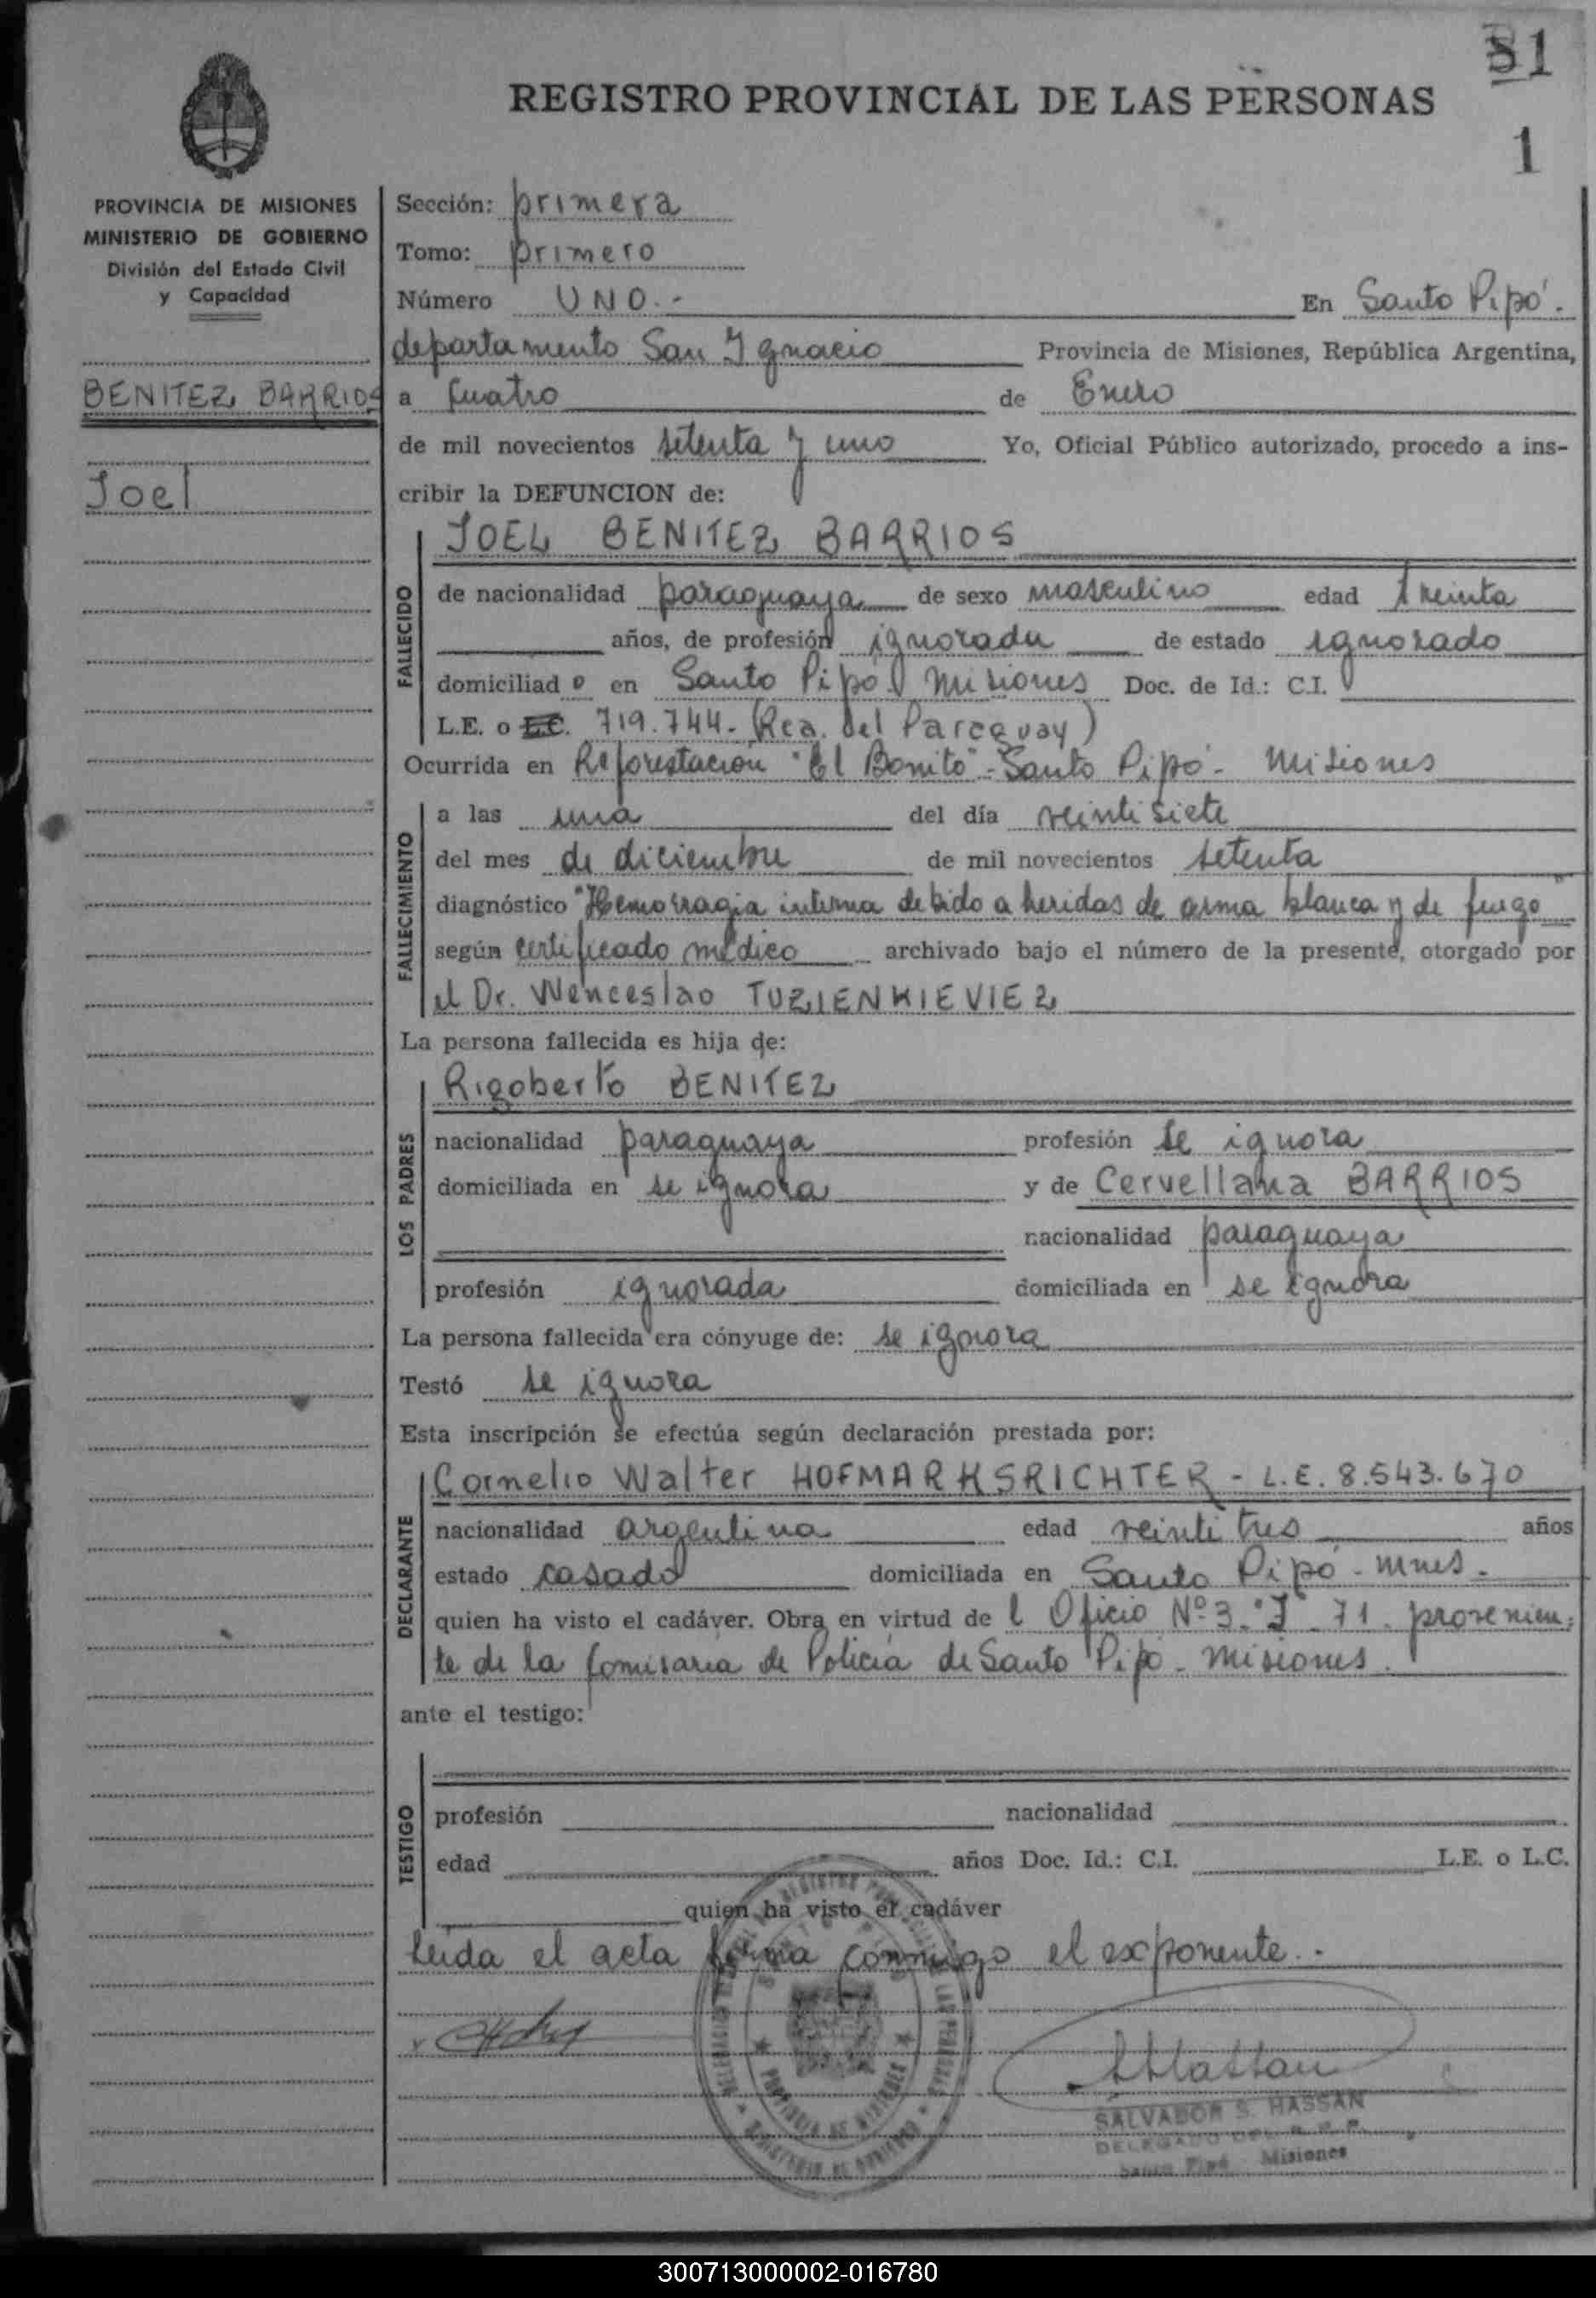 81
REGISTRO PROVINCIAL DE LAS PERSONAS
1
PROVINCIA DE MISIONES
MINISTERIO DE GOBIERNO
División del Estado Civil
y Capacidad
BENITEZ BARRIOS
Joel
Sección: primera
Tomo: primero
Número UNO.- En Santo Pipó.
departamento San Ignacio Provincia de Misiones, República Argentina,
a cuatro de Enero
de mil novecientos setenta y uno Yo, Oficial Público autorizado, procedo a ins-
cribir la DEFUNCION de:
JOEL BENITEZ BARRIOS
FALLECIDO
de nacionalidad paraguaya de sexo masculino edad treinta
años, de profesión ignorada de estado ignorado
domiciliado en Santo Pipó Misiones Doc. de Id.: C.I.
L.E. o L.C. 719.744- (Rca. del Paraguay)
Ocurrida en Reforestación "El Bonito"- Santo Pipó - Misiones
FALLECIMIENTO
a las una del día veintisiete
del mes de diciembre de mil novecientos setenta
diagnóstico "Hemorragia interna debido a heridas de arma blanca y de fuego"
según certificado médico archivado bajo el número de la presente, otorgado por
el Dr. Wenceslao TUZIENKIEVIEZ
La persona fallecida es hija de:
LOS PADRES
Rigoberto BENITEZ
nacionalidad paraguaya profesión se ignora
domiciliada en se ignora y de Cervellana BARRIOS
nacionalidad paraguaya
profesión ignorada domiciliada en se ignora
La persona fallecida era cónyuge de: se ignora
Testó se ignora
Esta inscripción se efectúa según declaración prestada por:
DECLARANTE
Cornelio Walter HOFMARKSRICHTER - L.E. 8.543.670
nacionalidad argentina edad veintitres años
estado casado domiciliada en Santo Pipó - Mnes.
quien ha visto el cadáver. Obra en virtud del Oficio Nº 3 "J" 71. provenien-
te de la Comisaría de Policía de Santo Pipó - Misiones.
ante el testigo:
TESTIGO
profesión nacionalidad
edad años Doc. Id.: C.I. L.E. o L.C.
quien ha visto el cadáver
Leída el acta firma conmigo el exponente.-
SALVADOR S. HASSAN
DELEGADO DEL R. P. P.
Santo Pipó - Misiones
300713000002-016780